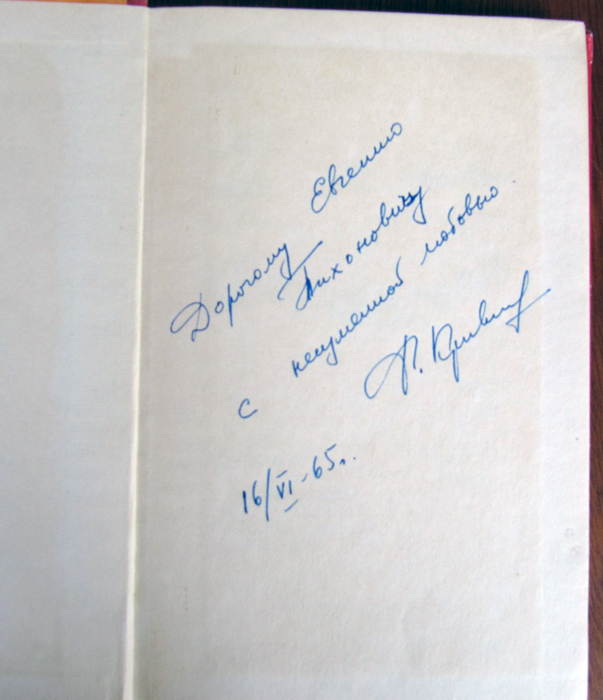 Дорогому Евгению
Тихоновичу
с неизменной любовью.
Ф. Кривин
16/VI-65г.